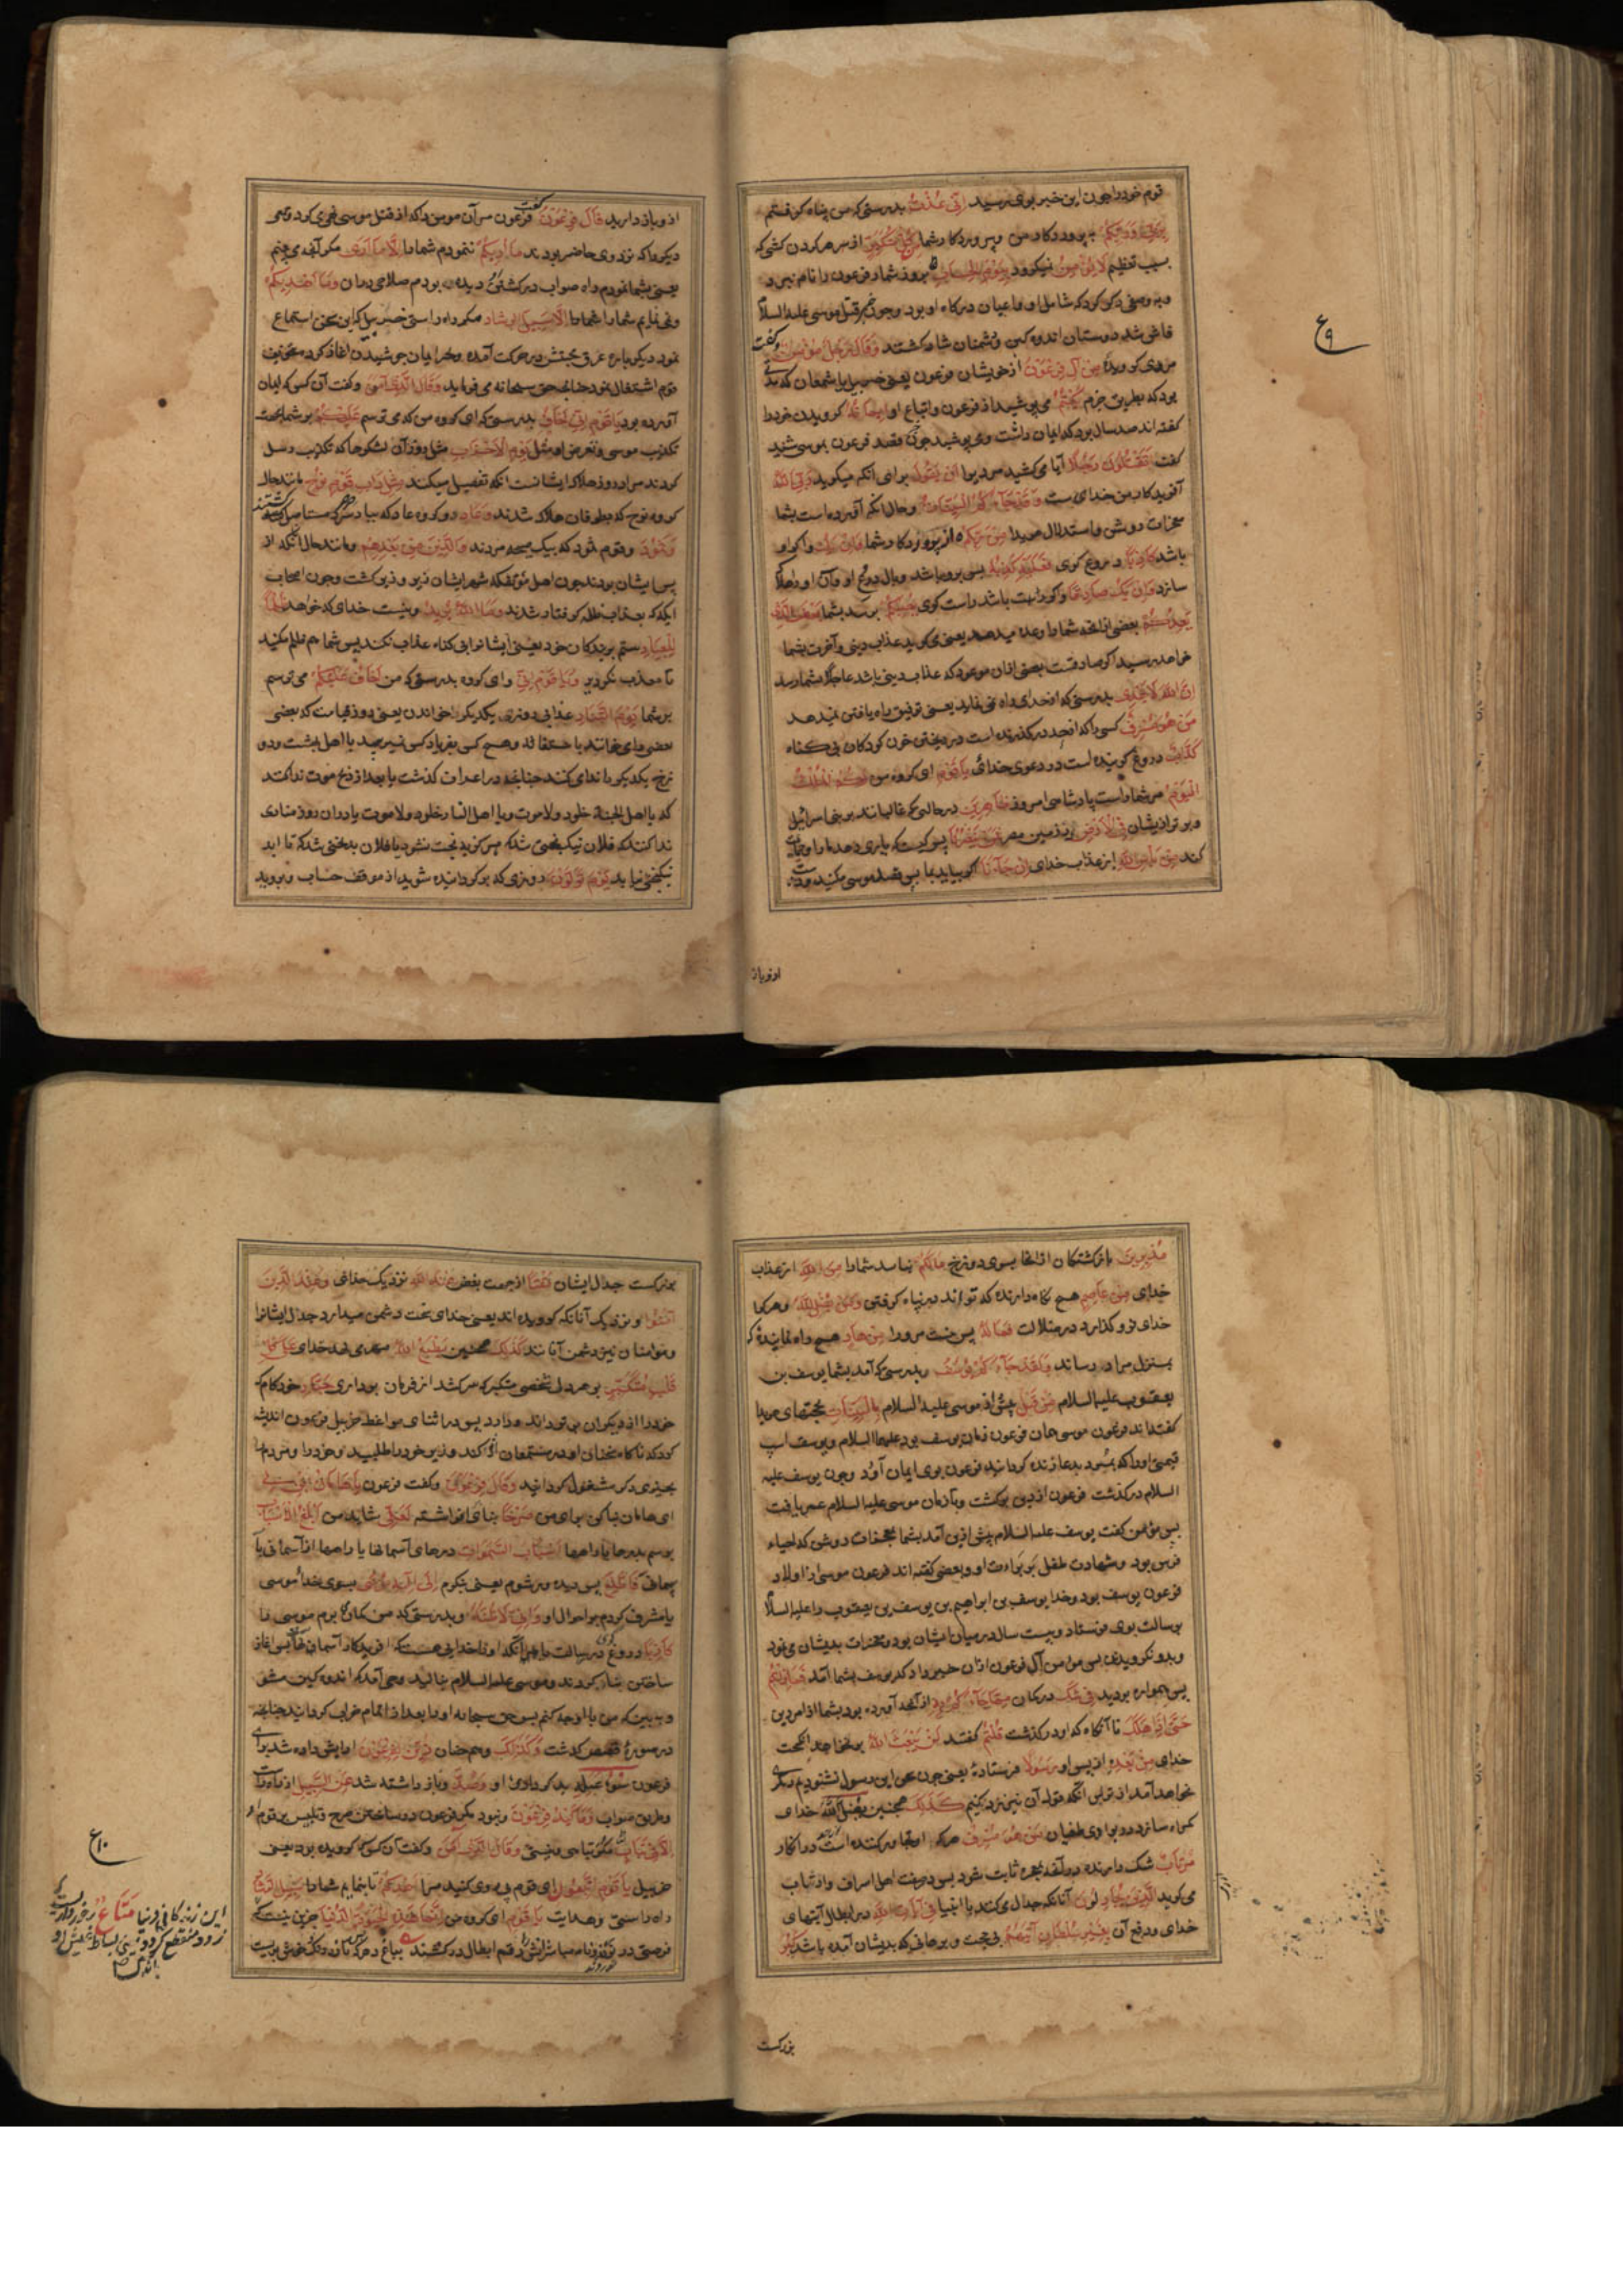 قوم خود را چون این خبر بوی رسید اِنّی عُذْتُ بدرستی که من پناه گرفتم
بِرَبّی وَرَبِّکُمْ به پروردکار من و پروردکار شما مِنْ کُلِّ مُتَکَبِّرٍ از هر کردن کشی که
بسبب تعظم لا یُؤْمِنُ نمیکرود بِیَوْمِ الْحِسَابِ بروز شمار فرعون را نام نبرد
فاش شد دوستان اندوه کین و دشمنان شاد کشتند وَقَالَ رَجُلٌ مُؤْمِنٌ و کفت
مردی کرویده مِنْ آلِ فِرْعَوْنَ از خویشان فرعون یعنی خربیل یا شمعان که
بود که بطریق جزم یَکْتُمُ می پوشید از فرعون و اتباع او اِیمَانَهُ کرویدن خود را
کفته اند صد سال بود که ایمان داشت و می پوشید چون قصد فرعون بموسی شنید
کفت اَتَقْتُلُونَ رَجُلًا آیا می کشید مردیرا اَنْ یَقُولَ برای آنکه میکوید رَبِّیَ اللّٰهُ
آفریدکار من خدای است وَقَدْ جَآءَکُمْ بِالْبَیِّنَاتِ و حال آنکه آورده است بشما
معجزات روشن و استدلال هویدا مِنْ رَبِّکُمْ از پروردکار شما وَاِنْ یَکُ و اکر او
باشد کَاذِبًا دروغ کوی فَعَلَیْهِ کَذِبُهُ پس برو باشد وبال دروغ او
سازد وَاِنْ یَکُ صَادِقًا و اکر باشد راست کوی یُصِبْکُمْ برسد بشما بَعْضُ الَّذِی
یَعِدُکُمْ بعضی از آنچه شما را وعده میدهد یعنی میکوید عذاب دنیی و آخرت بشما
خواهد رسید اکر صادقست بعضی از ان موعود که عذاب دنیی باشد عاجلا بشما رسد
اِنَّ اللّٰهَ لَا یَهْدِی بدرستی که خدای راه نمی نماید یعنی توفیق راه یافتن نمیدهد
مَنْ هُوَ مُسْرِفٌ کسی را که از حد درکذرنده است در ریختن خون کودکان بی کناه
کَذَّابٌ دروغ کوینده است در دعوی خدائی یَا قَوْمِ ای کروه من لَکُمُ الْمُلْکُ
الْیَوْمَ مر شما راست پادشاهی امروز ظَاهِرِینَ در حالتی که غالبانید بر بنی اسرائیل
و برتر از ایشان فِی الْاَرْضِ در زمین مصر فَمَنْ یَنْصُرُنَا پس کیست که یاری دهد ما را
کند مِنْ بَاْسِ اللّٰهِ از عذاب خدای اِنْ جَآءَنَا اکر بیاید بما پس قصد موسی مکنید و دست
از و باز
ع ۹
از و باز دارید قَالَ فِرْعَوْنُ کفت فرعون مر آن مومن را که از قتل موسی نهی کرد و قومی
دیکر را که نزد وی حاضر بودند مَا اُرِیکُمْ ننمودم شما را اِلَّا مَا اَرٰی مکر آنچه می بینم
یعنی بشما نمودم راه صواب در کشتن و دیده بودم صلاح در ان وَمَا اَهْدِیکُمْ
و نمی نمایم شما را اِلَّا سَبِیلَ الرَّشَادِ مکر راه راستی خربیل که این سخن استماع
نمود دیکر باره عرق حبتش در حرکت آمده و خراییان جوشیدن آغاز کرد
قوم اشتغال نمود چنانچه حق سبحانه می فرماید وَقَالَ الَّذِی آمَنَ و کفت آن کسی که ایمان
آورده بود یَا قَوْمِ اِنِّی اَخَافُ بدرستی که ای کروه من که می ترسم عَلَیْکُمْ بر شما بجهت
تکذیب موسی و تعرض او مِثْلَ یَوْمِ الْاَحْزَابِ مثل روز آن لشکرها که تکذیب رسل
کردند مراد روز هلاک ایشانست آنکه تفصیل میکند مِثْلَ دَاْبِ قَوْمِ نُوحٍ مانند حال
کروه نوح که بطوفان هلاک شدند وَعَادٍ و کروه عاد که بباد صرصر مستاصل کشتند
وَثَمُودَ و قوم ثمود که بیک صیحه مردند وَالَّذِینَ مِنْ بَعْدِهِمْ و مانند حال آنکه از
پس ایشان بودند چون اهل مؤتفکه که شهر ایشان زیر و زبر کشت و چون اصحاب
ایکه که بعذاب ظله کرفتار شدند وَمَا اللّٰهُ یُرِیدُ و نیست خدای که خواهد ظُلْمًا
لِلْعِبَادِ ستم بر بندکان خود یعنی ایشانرا بی کناه عذاب نکند پس شما هم ظلم مکنید
تا معذب نکردید وَیَا قَوْمِ اِنِّی و ای کروه بدرستی که من اَخَافُ عَلَیْکُمْ می ترسم
بر شما یَوْمَ التَّنَادِ عذابی روزی یکدیکر را خواندن یعنی روز قیامت که بعضی
بعضی را می خوانند باستغاثه و هیچ کس بفریاد کسی نمیرسد یا اهل بهشت و دو
زخ یکدیکر را ندا می کنند چنانچه در اعراف کذشت یا بعد از ذبح موت ندا کنند
که یا اهل الجنة خلود ولا موت و یا اهل النار خلود ولا موت یا در ان روز منادی
ندا کند که فلان نیک بختی شد که هرکز بدبخت نشود یا فلان بدبختی شد که تا ابد
نیکبختی نیابد یَوْمَ تُوَلُّونَ روزی که برکردانیده شوید از موقف حساب و بروید
مُدْبِرِینَ بازکشتکان از انجا بسوی دوزخ مَالَکُمْ نباشد شما را مِنَ اللّٰهِ از عذاب
خدای مِنْ عَاصِمٍ هیچ نکاه دارنده که تواند در پناه کرفتن وَمَنْ یُضْلِلِ اللّٰهُ و هر کرا
خدای فرو کذارد در ضلالت فَمَا لَهُ پس نیست مر ورا مِنْ هَادٍ هیچ راه نماینده که
بمنزل مراد رساند وَلَقَدْ جَآءَکُمْ یُوسُفُ و بدرستی که آمد بشما یوسف بن
یعقوب علیه السلام مِنْ قَبْلُ پیش از موسی علیه السلام بِالْبَیِّنَاتِ بحجتهای هویدا
کفته اند فرعون موسی همان فرعون زمان یوسف بود علیهما السلام و یوسف اسپ
السلام درکذشت فرعون از دین برکشت و تا زمان موسی علیه السلام عمر یافت
پس مؤمن کفت یوسف علیه السلام پیش ازین آمد بشما بمعجزات روشن که احیاء
فرس بود و شهادت طفل بر براءت او و بعضی کفته اند فرعون موسی از اولاد
فرعون یوسف بود و خدا یوسف بن ابراهیم بن یوسف بن یعقوب را علیه السلام
برسالت بوی فرستاد و بیست سال در میان ایشان بود و معجزات بدیشان می نمود
و بدو نکرویدند پس مؤمن آل فرعون از ان خبر داد که یوسف بشما آمد فَمَا زِلْتُمْ
پس همواره بودید فِی شَکٍّ در کمان مِمَّا جَآءَکُمْ بِهِ از آنچه آورده بود بشما از امر دین
حَتَّی اِذَا هَلَکَ تا آنکاه که او درکذشت قُلْتُمْ کفتید لَنْ یَبْعَثَ اللّٰهُ برنخواهد انکیخت
خدای مِنْ بَعْدِهِ از پس او رَسُولًا فرستادۀ یعنی چون سخن این رسول نشنودیم دیکری
نخواهد آمد از ترس آنکه قول آن نیز رد کنیم کَذٰلِکَ همچنین یُضِلُّ اللّٰهُ خدای
کمراه سازد در بوادی طغیان مَنْ هُوَ مُسْرِفٌ هر که او تجاوز کننده است در انکار
مُرْتَابٌ شک دارنده در آنچه بحجة ثابت شود پس در صفت اهل اسراف و ارتیاب
می کوید الَّذِینَ یُجَادِلُونَ آنانکه جدال می کنند با انبیا فِی آیَاتِ اللّٰهِ در ابطال آیتهای
خدای و دفع آن بِغَیْرِ سُلْطَانٍ اَتَاهُمْ بی حجت و برهانی که بدیشان آمده باشد کَبُرَ
بزرکست
بزرکست جدال ایشان مَقْتًا از جهت بغض عِنْدَ اللّٰهِ نزدیک خدای وَعِنْدَ الَّذِینَ
آمَنُوا و نزدیک آنانکه کرویده اند یعنی خدای سخت دشمن میدارد جدال ایشانرا
و مؤمنان نیز دشمن آنانند کَذٰلِکَ همچنین یَطْبَعُ اللّٰهُ مهر می نهد خدای عَلٰی کُلِّ
قَلْبِ مُتَکَبِّرٍ بر هر دل شخصی متکبر که سرکشد از فرمان برداری جَبَّارٍ خودکام که
خود را از دیکران برتر داند و دارد پس در اثنای مواعظ خربیل فرعون اندیشه
کرد که ناکاه سخنان او در مستمعان اثر کند وزیر خود را طلبید و خود را و مردم را
بچیزی دیکر مشغول کردانید وَقَالَ فِرْعَوْنُ و کفت فرعون یَا هَامَانُ ابْنِ لِی
ای هامان بنا کن برای من صَرْحًا بنای افراشته لَعَلِّی شاید من اَبْلُغُ الْاَسْبَابَ
برسم بدرها یا راهها اَسْبَابَ السَّمٰوَاتِ درهای آسمانها یا راهها از آسمانی بآ
سمانی فَاَطَّلِعَ پس دیده ور شوم یعنی بنکرم اِلٰی اِلٰهِ مُوسٰی بسوی خدای موسی
یا مشرف کردم بر احوال او وَاِنِّی لَاَظُنُّهُ و بدرستی که من کمان می برم موسی را
کَاذِبًا دروغ کوی در رسالت یا در آنکه او را خدایی هست که آفریدکار آسمانهاست پس آغاز
ساختن بنا کردند و موسی علیه السلام بنالید وحی آمد که اندوه کین مشو
و ببین که من با او چه کنم پس حق سبحانه او را بعد از اتمام خراب کردانید چنانچه
در سورۀ قصص کذشت وَکَذٰلِکَ و همچنان زُیِّنَ لِفِرْعَوْنَ آرایش داده شد برای
فرعون سُوءُ عَمَلِهِ بد کرداری او وَصُدَّ و باز داشته شد عَنِ السَّبِیلِ از راه راست
و طریق صواب وَمَا کَیْدُ فِرْعَوْنَ و نبود مکر فرعون در ساختن صرح و تلبیس بر قوم او
اِلَّا فِی تَبَابٍ مکر در تباهی و نیستی وَقَالَ الَّذِی آمَنَ و کفت آن کس که کرویده بود یعنی
خربیل یَا قَوْمِ اتَّبِعُونِ ای قوم پی روی کنید مرا اَهْدِکُمْ تا بنمایم شما را سَبِیلَ الرَّشَادِ
راه راستی و هدایت یَا قَوْمِ ای کروه من اِنَّمَا هٰذِهِ الْحَیٰوةُ الدُّنْیَا جزین نیست که
ع ۱۰
این زندکانی دنیا مَتَاعٌ